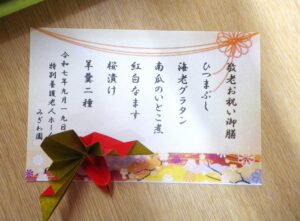 敬老お祝い御膳
ひつまぶし
海老グラタン
南瓜のいとこ煮
紅白なます
桜漬け
羊羹二種
令和七年九月一九日
特別養護老人ホーム
みざわ園